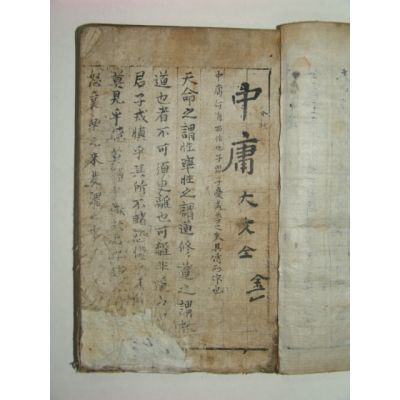 中庸大文全
中庸何爲而作也子思子憂道學之失其傳而作也
天命之謂性率性之謂道修道之謂教
道也者不可須臾離也可離非道也
君子戒愼乎其所不睹恐懼
莫見乎隱莫顯乎微
怒哀樂之未發謂之中